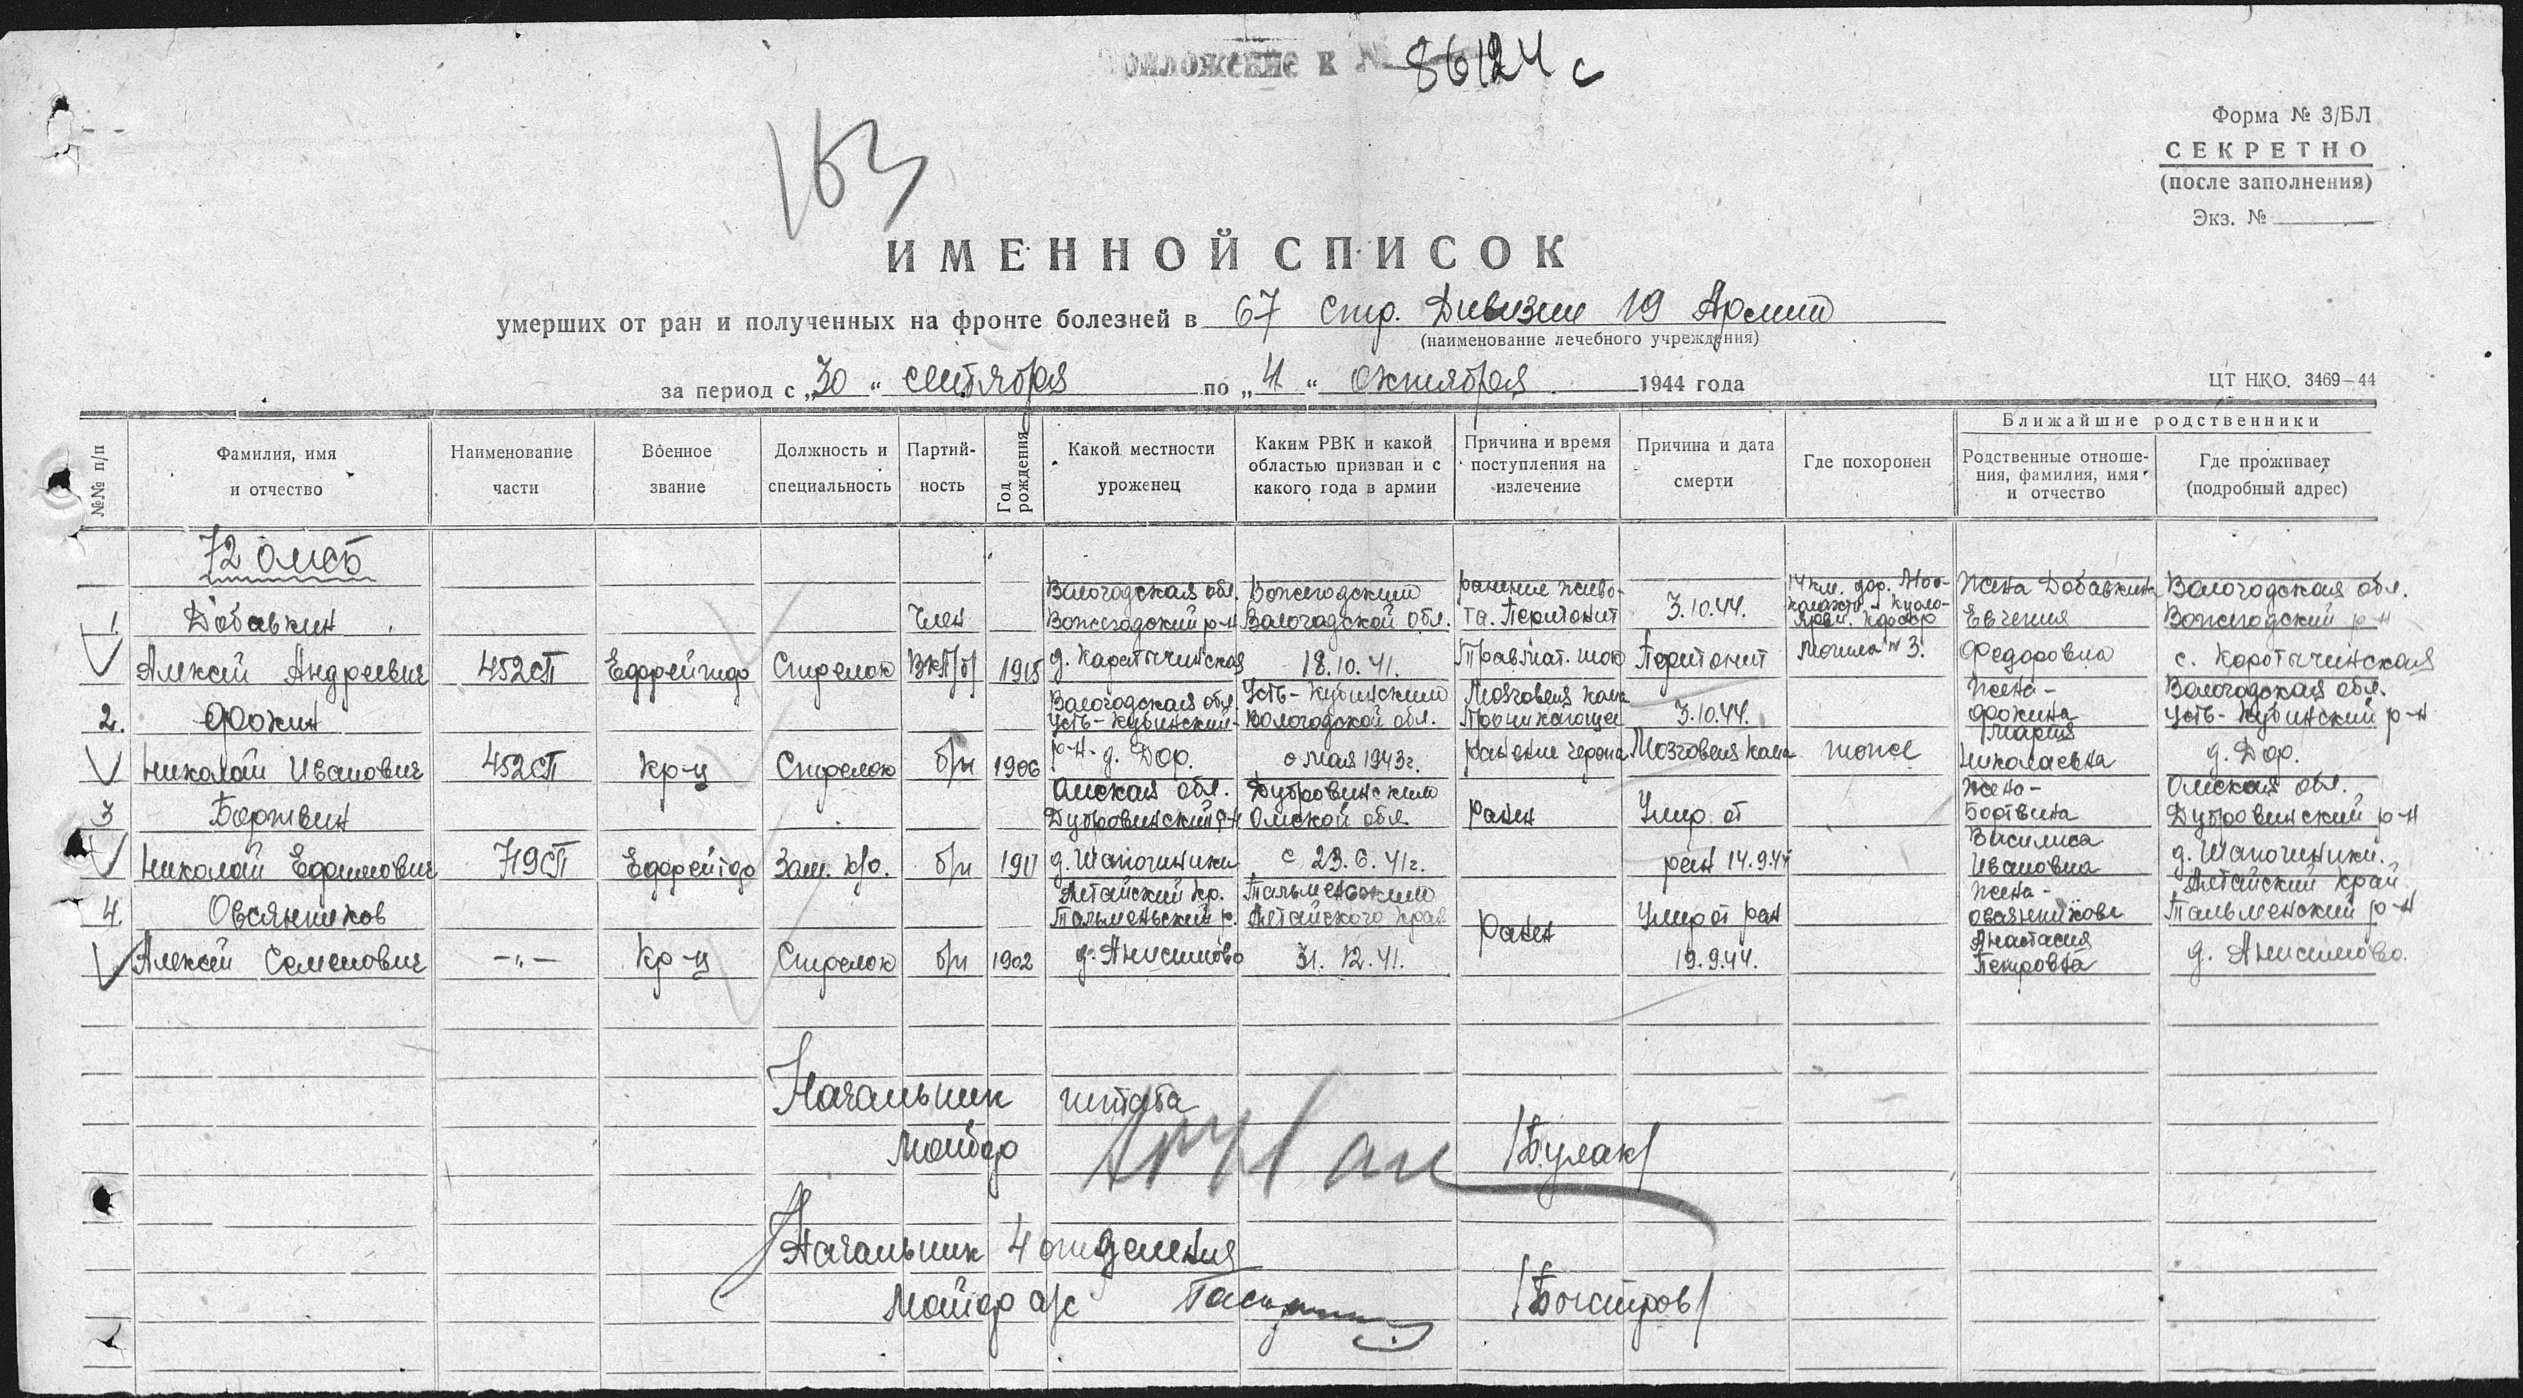 Приложение к № 86124 с
163
Форма № 3/БЛ
СЕКРЕТНО
(после заполнения)
Экз. №
ИМЕННОЙ СПИСОК
умерших от ран и полученных на фронте болезней в 67 Стр. Дивизии 19 Армии
(наименование лечебного учреждения)
за период с „30“ сентября по „4“ октября 1944 года
ЦТ НКО. 3469—44
№№ п/п
Фамилия, имя и отчество
Наименование части
Военное звание
Должность и специальность
Партийность
Год рождения
Какой местности уроженец
Каким РВК и какой областью призван и с какого года в армии
Причина и время поступления на излечение
Причина и дата смерти
Где похоронен
Ближайшие родственники
Родственные отношения, фамилия, имя и отчество
Где проживает (подробный адрес)
72 омсб
1.
Добавкин
Алексей Андреевич
452СП
Ефрейтор
Стрелок
Член
ВКП/б/
1915
Вологодская обл.
Вожегодский р-н
д. Каротычинская
Вожегодский
Вологодской обл.
18.10.41.
ранение живо-
та. Перитонит
Травмат. шок
3.10.44.
Перитонит
14 км. дор.
Могила № 3.
Жена Добавкина
Евгения
Федоровна
Вологодская обл.
Вожегодский р-н
с. Коротычинская
2.
Фокин
Николай Иванович
452СП
Кр-ц
Стрелок
б/п
1906
Вологодская обл.
Усть-Кубинский
р-н д. Дор.
Усть-Кубинским
Вологодской обл.
с мая 1943г.
Мозговая кома
Проникающее
ранение черепа
3.10.44.
Мозговая кома
тоже
Жена-
Фокина
Мария
Николаевна
Вологодская обл.
Усть-Кубинский р-н
д. Дор.
3
Бортвин
Николай Ефимович
719СП
Ефрейтор
Зам. к/о.
б/п
1911
Омская обл.
Дубровинский р-н
д. Шапочники
Дубровинским
Омской обл.
с 23.6.41г.
ранен
Умер от
ран 14.9.44
Жена-
Бортвина
Василиса
Ивановна
Омская обл.
Дубровинский р-н
д. Шапочники.
4.
Овсянников
Алексей Семенович
-"-
Кр-ц
Стрелок
б/п
1902
Алтайский кр.
Тальменьский р.
д. Анисимово
Тальменьским
Алтайского края
31.12.41.
Ранен
Умер от ран
19.9.44.
Жена-
Овсянникова
Анастасия
Петровна
Алтайский край
Тальменский р-н
д. Анисимово.
Начальник штаба
Майор /Булак/
Начальник 4 отделения
Майор а/с /Быстров/